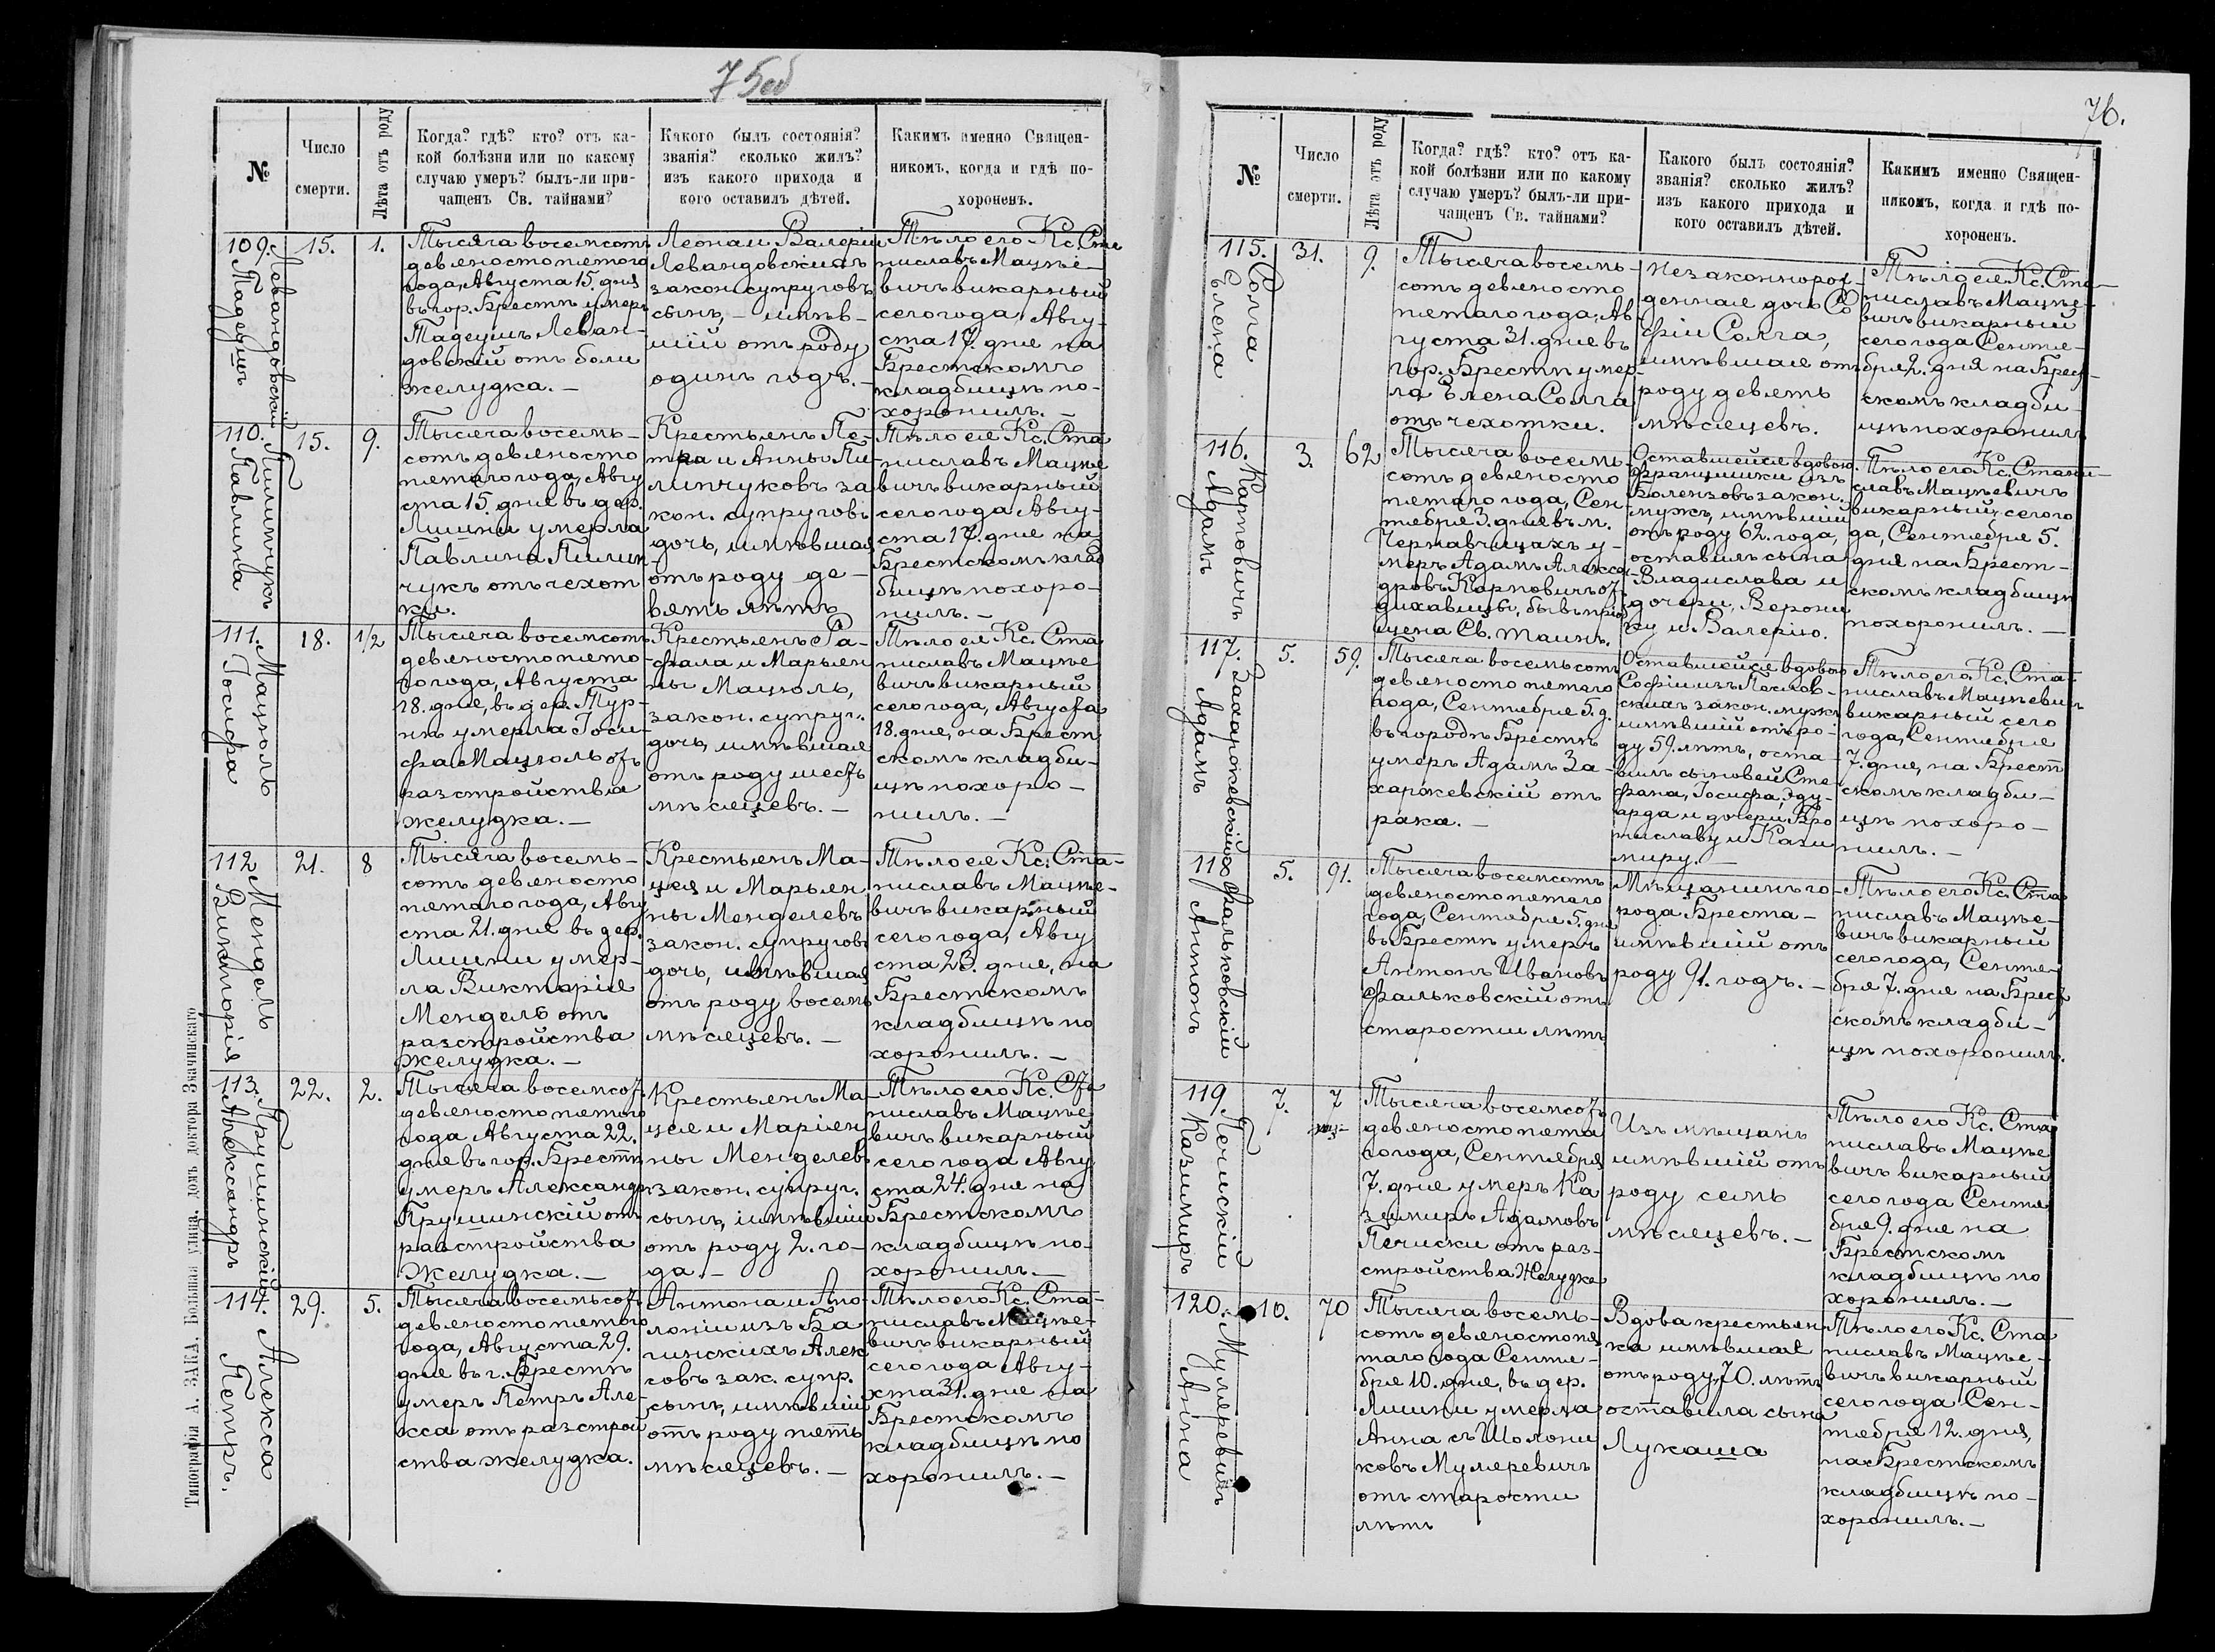 75об
№
Число
смерти.
Лѣта отъ роду
Когда? гдѣ? кто? отъ ка-
кой болѣзни или по какому
случаю умеръ? былъ-ли при-
чащенъ Св. тайнами?
Какого былъ состоянія?
званія? сколько жилъ?
изъ какого прихода и
кого оставилъ дѣтей.
Какимъ именно Священ-
никомъ, когда и гдѣ по-
хороненъ.
109.
Левандовскій
Тадеушъ
15.
1.
Тысяча восемсотъ
девяносто пятого
года, Августа 15. дня
въ гор. Брестѣ умеръ
Тадеушъ Леван-
довскій отъ боли
желудка. —
Леона и Валеріи
Левандовскихъ
закон. супруговъ
сынъ, — имѣв-
шій отъ роду
одинъ годъ. —
Тѣло его Кс. Ста
ниславъ Мацѣе-
вичъ викарный
сего года, Авгу-
ста 17. дня на
Брестскомъ
кладбищѣ по-
хоронилъ. —
110.
Пилипчукъ
Павлина
15.
9.
Тысяча восемь-
сотъ девяносто
пятаго года, Авгу
ста 15. дня въ дер.
Лишни умерла
Павлина Пилип-
чукъ отъ чехот
ки.
Крестьянъ Пе-
тра и Анны Пи-
липчуковъ за
кон. супруговъ
дочь, имѣвшая
отъ роду де-
вять лѣтъ
Тѣло ея Кс. Ста
ниславъ Мацѣе
вичъ викарный
сего года Авгу-
ста 17. дня на
Брестскомъ клад
бищѣ похоро-
нилъ. —
111.
Мацоль
Іосифа
18.
1/2
Тысяча восемсотъ
девяносто пято-
го года, Августа
18. дня, въ дер. Тур-
нѣ умерла Іоси-
фа Мацоль отъ
разстройства
желудка. —
Крестьянъ Ра-
фала и Марьян
ны Мацоль,
закон. супруг.
дочь, имѣвшая
отъ роду шесть
мѣсяцевъ. —
Тѣло ея Кс. Ста
ниславъ Мацѣе
вичъ викарный
сего года, Августа
18. дня, на Брест
скомъ кладби-
щѣ похоро-
нилъ. —
112
Мендель
Викторія
21.
8
Тысяча восемь-
сотъ девяносто
пятаго года, Авгу
ста 21. дня въ дер.
Лишни умер-
ла Викторія
Мендель отъ
разстройства
желудка. —
Крестьянъ Ма-
цея и Марьян
ны Менделевъ
закон. супруговъ
дочь, имѣвшая
отъ роду восемь
мѣсяцевъ. —
Тѣло ея Кс. Ста-
ниславъ Мацѣе-
вичъ викарный
сего года, Авгу
ста 23. дня, на
Брестскомъ
кладбищѣ по
хоронилъ. —
113.
Прушинскій
Александръ
22.
2.
Тысяча восемсотъ
девяносто пятого
года Августа 22.
дня въ гор. Брестѣ
умеръ Александръ
Прушинскій отъ
разстройства
желудка. —
Крестьянъ Ма
цея и Маріян
ны Менделев
закон. супруг.
сынъ, имѣвшій
отъ роду 2. го-
да. —
Тѣло его Кс. Ста
ниславъ Мацѣе
вичъ викарный
сего года Авгу
ста 24. дня на
Брестскомъ
кладбищѣ по-
хоронилъ. —
114.
Алекса
Петръ.
29.
5.
Тысяча восемьсотъ
девяносто пятого
года, Августа 29.
дня въ г. Брестѣ
умеръ Петръ Але-
кса отъ разстрой
ства желудка.
Антона и Апо-
лоніи изъ Ба
гинскихъ Алек
совъ зак. супр.
сынъ, имѣвшій
отъ роду пять
мѣсяцевъ. —
Тѣло его Кс. Ста-
ниславъ Мацѣе-
вичъ викарный
сего года Авгу-
ста 31. дня на
Брестскомъ
кладбищѣ по
хоронилъ. —
Типографія А. ЗАКА. Большая улица, домъ доктора Значинскаго
76.
№
Число
смерти.
Лѣта отъ роду
Когда? гдѣ? кто? отъ ка-
кой болѣзни или по какому
случаю умеръ? былъ-ли при-
чащенъ Св. тайнами?
Какого былъ состоянія?
званія? сколько жилъ?
изъ какого прихода и
кого оставилъ дѣтей.
Какимъ именно Священ-
никомъ, когда и гдѣ по-
хороненъ.
115.
Солга
Елена
31.
9.
Тысяча восемь-
сотъ девяносто
пятаго года, Ав
густа 31. дня въ
гор. Брестѣ умер-
ла Елена Солга
отъ чехотки.
Незаконнорож-
денная дочь Со
фіи Солга,
имѣвшая отъ
роду девять
мѣсяцевъ.
Тѣло ея Кс. Ста-
ниславъ Мацѣе-
вичъ викарный
сего года Сентя-
бря 2. дня на Брест-
скомъ кладби-
щѣ похоронилъ
116.
Карповичъ
Адамъ
3.
62
Тысяча восемь-
сотъ девяносто
пятаго года, Сен
тября 3. дня въ м.
Чернавчицахъ у-
меръ Адамъ Алексан-
дровъ Карповичъ от
дихавицы, бывъ пріоб
щена Св. таинъ.
Оставшейся вдовою
Францишки изъ
Болензовъ закон.
мужъ, имѣвшій
отъ роду 62. года,
оставилъ сына
Владислава и
дочери, Верони
ку и Валерію.
Тѣло его Кс. Стани-
славъ Мацѣевичъ
викарный сего го
да, Сентября 5.
дня на Брест-
скомъ кладбищѣ
похоронилъ. —
117.
Захаржевскій
Адамъ
5.
59.
Тысяча восемьсотъ
девяносто пятаго
года, Сентября 5. д.
въ городѣ Брестѣ
умеръ Адамъ За-
харжевскій отъ
рака. —
Оставшейся вдовою
Софіи изъ
скихъ закон. мужъ
имѣвшій отъ ро-
ду 59. лѣтъ, оста-
вилъ сыновей Сте-
фана, Іосифа, Эду-
арда и дочери Бро
ниславу и Кази
миру. —
Тѣло его Кс. Ста-
ниславъ Мацѣевичъ
викарный сего
года, Сентября
7. дня, на Брест
скомъ кладби-
щѣ похоро-
нилъ. —
118
Фальковскій
Антонъ
5.
91.
Тысяча восемсотъ
девяносто пятаго
года, Сентября 5. дня
въ Брестѣ умеръ
Антонъ Ивановъ
Фальковскій отъ
старости лѣтъ
Мѣщанинъ го-
рода Бреста —
имѣвшій отъ
роду 91. годъ. —
Тѣло его Кс. Ста
ниславъ Мацѣе-
вичъ викарный
сего года, Сентя-
бря 7. дня на Брест
скомъ кладби-
щѣ похоронилъ.
119.
Печискій
Казимиръ
7.
7
Тысяча восемсотъ
девяносто пята
го года, Сентября
7. дня умеръ Ка
зимиръ Адамовъ
Печиски отъ раз-
стройства желудка
Изъ мѣщанъ
имѣвшій отъ
роду семь
мѣсяцевъ. —
Тѣло его Кс. Ста
ниславъ Мацѣе
вичъ викарный
сего года Сентя
бря 9. дня на
Брестскомъ
кладбищѣ по
хоронилъ. —
120.
Муляревичъ
Анна
10.
70
Тысяча восемь-
сотъ девяносто пя
таго года Сентя-
бря 10. дня, въ дер.
Лишни умерла
Анна съ Шолони
ковъ Муляревичъ
отъ старости
лѣтъ
Вдова крестьян
ка имѣвшая
отъ роду 70. лѣтъ
оставила сына
Лукаша
Тѣло его Кс. Ста
ниславъ Мацѣе-
вичъ викарный
сего года Сен-
тября 12. дня,
на Брестскомъ
кладбищѣ по-
хоронилъ. —